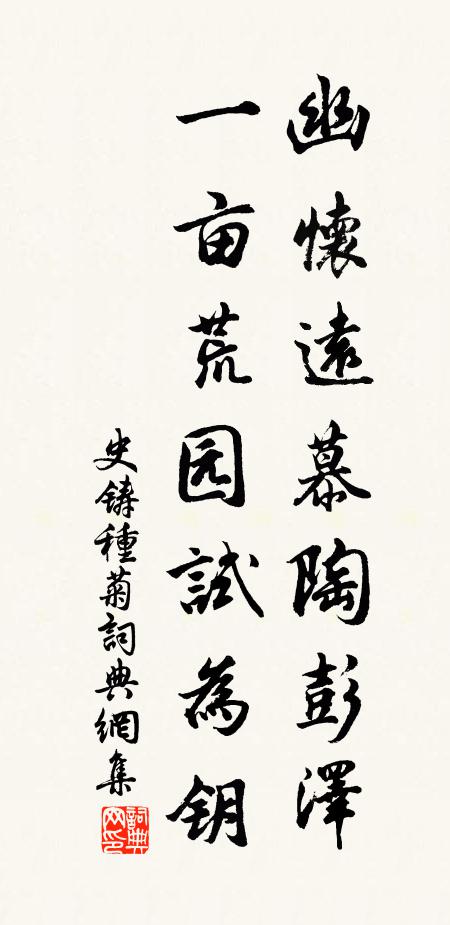 幽懷遠慕陶彭澤
一亩荒园試為钥
史铸種菊詞典網集
詞典网印